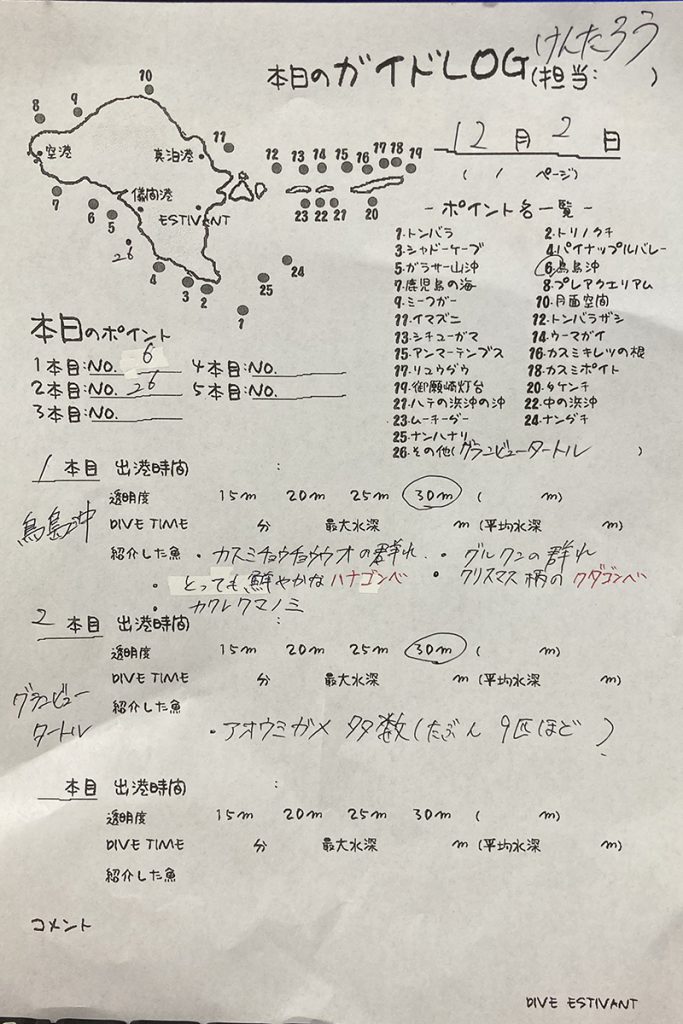 本日のガイドLOG(担当:けんたろう)
12月2日
( / ページ)
10
8 9
空港 真泊港 11
12 13 14 15 16 17 18 19
7 6 5 儀間港 ESTIVANT
23 22 21 20
26
4 3 2 1 25 24
-ポイント名一覧-
1.トンバラ 2.トリノクチ
3.シャドーケーブ 4.パイナップルバレー
5.ガラサー山沖 6.鳥島沖
7.鹿児島の海 8.プレアクエリアム
9.ミーフガー 10.月面空間
11.イマズニ 12.トンバラザシ
13.シチューガマ 14.ウーマガイ
15.アンマーテンプス 16.カスミキレツの根
17.リュウグウ 18.カスミポイト
19.御願崎灯台 20.タケンチ
21.ハテの浜沖の沖 22.中の浜沖
23.ムーチーグー 24.ナングチ
25.ナンハナリ
26.その他(グランビュータートル)
本日のポイント
1本目:NO. 6 4本目:NO.
2本目:NO. 26 5本目:NO.
3本目:NO.
1 本目 出港時間 :
透明度 15m 20m 25m 30m ( m)
鳥島沖
DIVE TIME 分 最大水深 m (平均水深 m)
紹介した魚 ・カスミチョウチョウウオの群れ ・グルクンの群れ
・とっても鮮やかなハナゴンベ ・クリスマス柄のクダゴンベ
・カクレクマノミ
2 本目 出港時間 :
透明度 15m 20m 25m 30m ( m)
DIVE TIME 分 最大水深 m (平均水深 m)
グランビュー
タートル
紹介した魚
・アオウミガメ 多数(たぶん 9匹ほど)
本目 出港時間 :
透明度 15m 20m 25m 30m ( m)
DIVE TIME 分 最大水深 m (平均水深 m)
紹介した魚
コメント
DIVE ESTIVANT